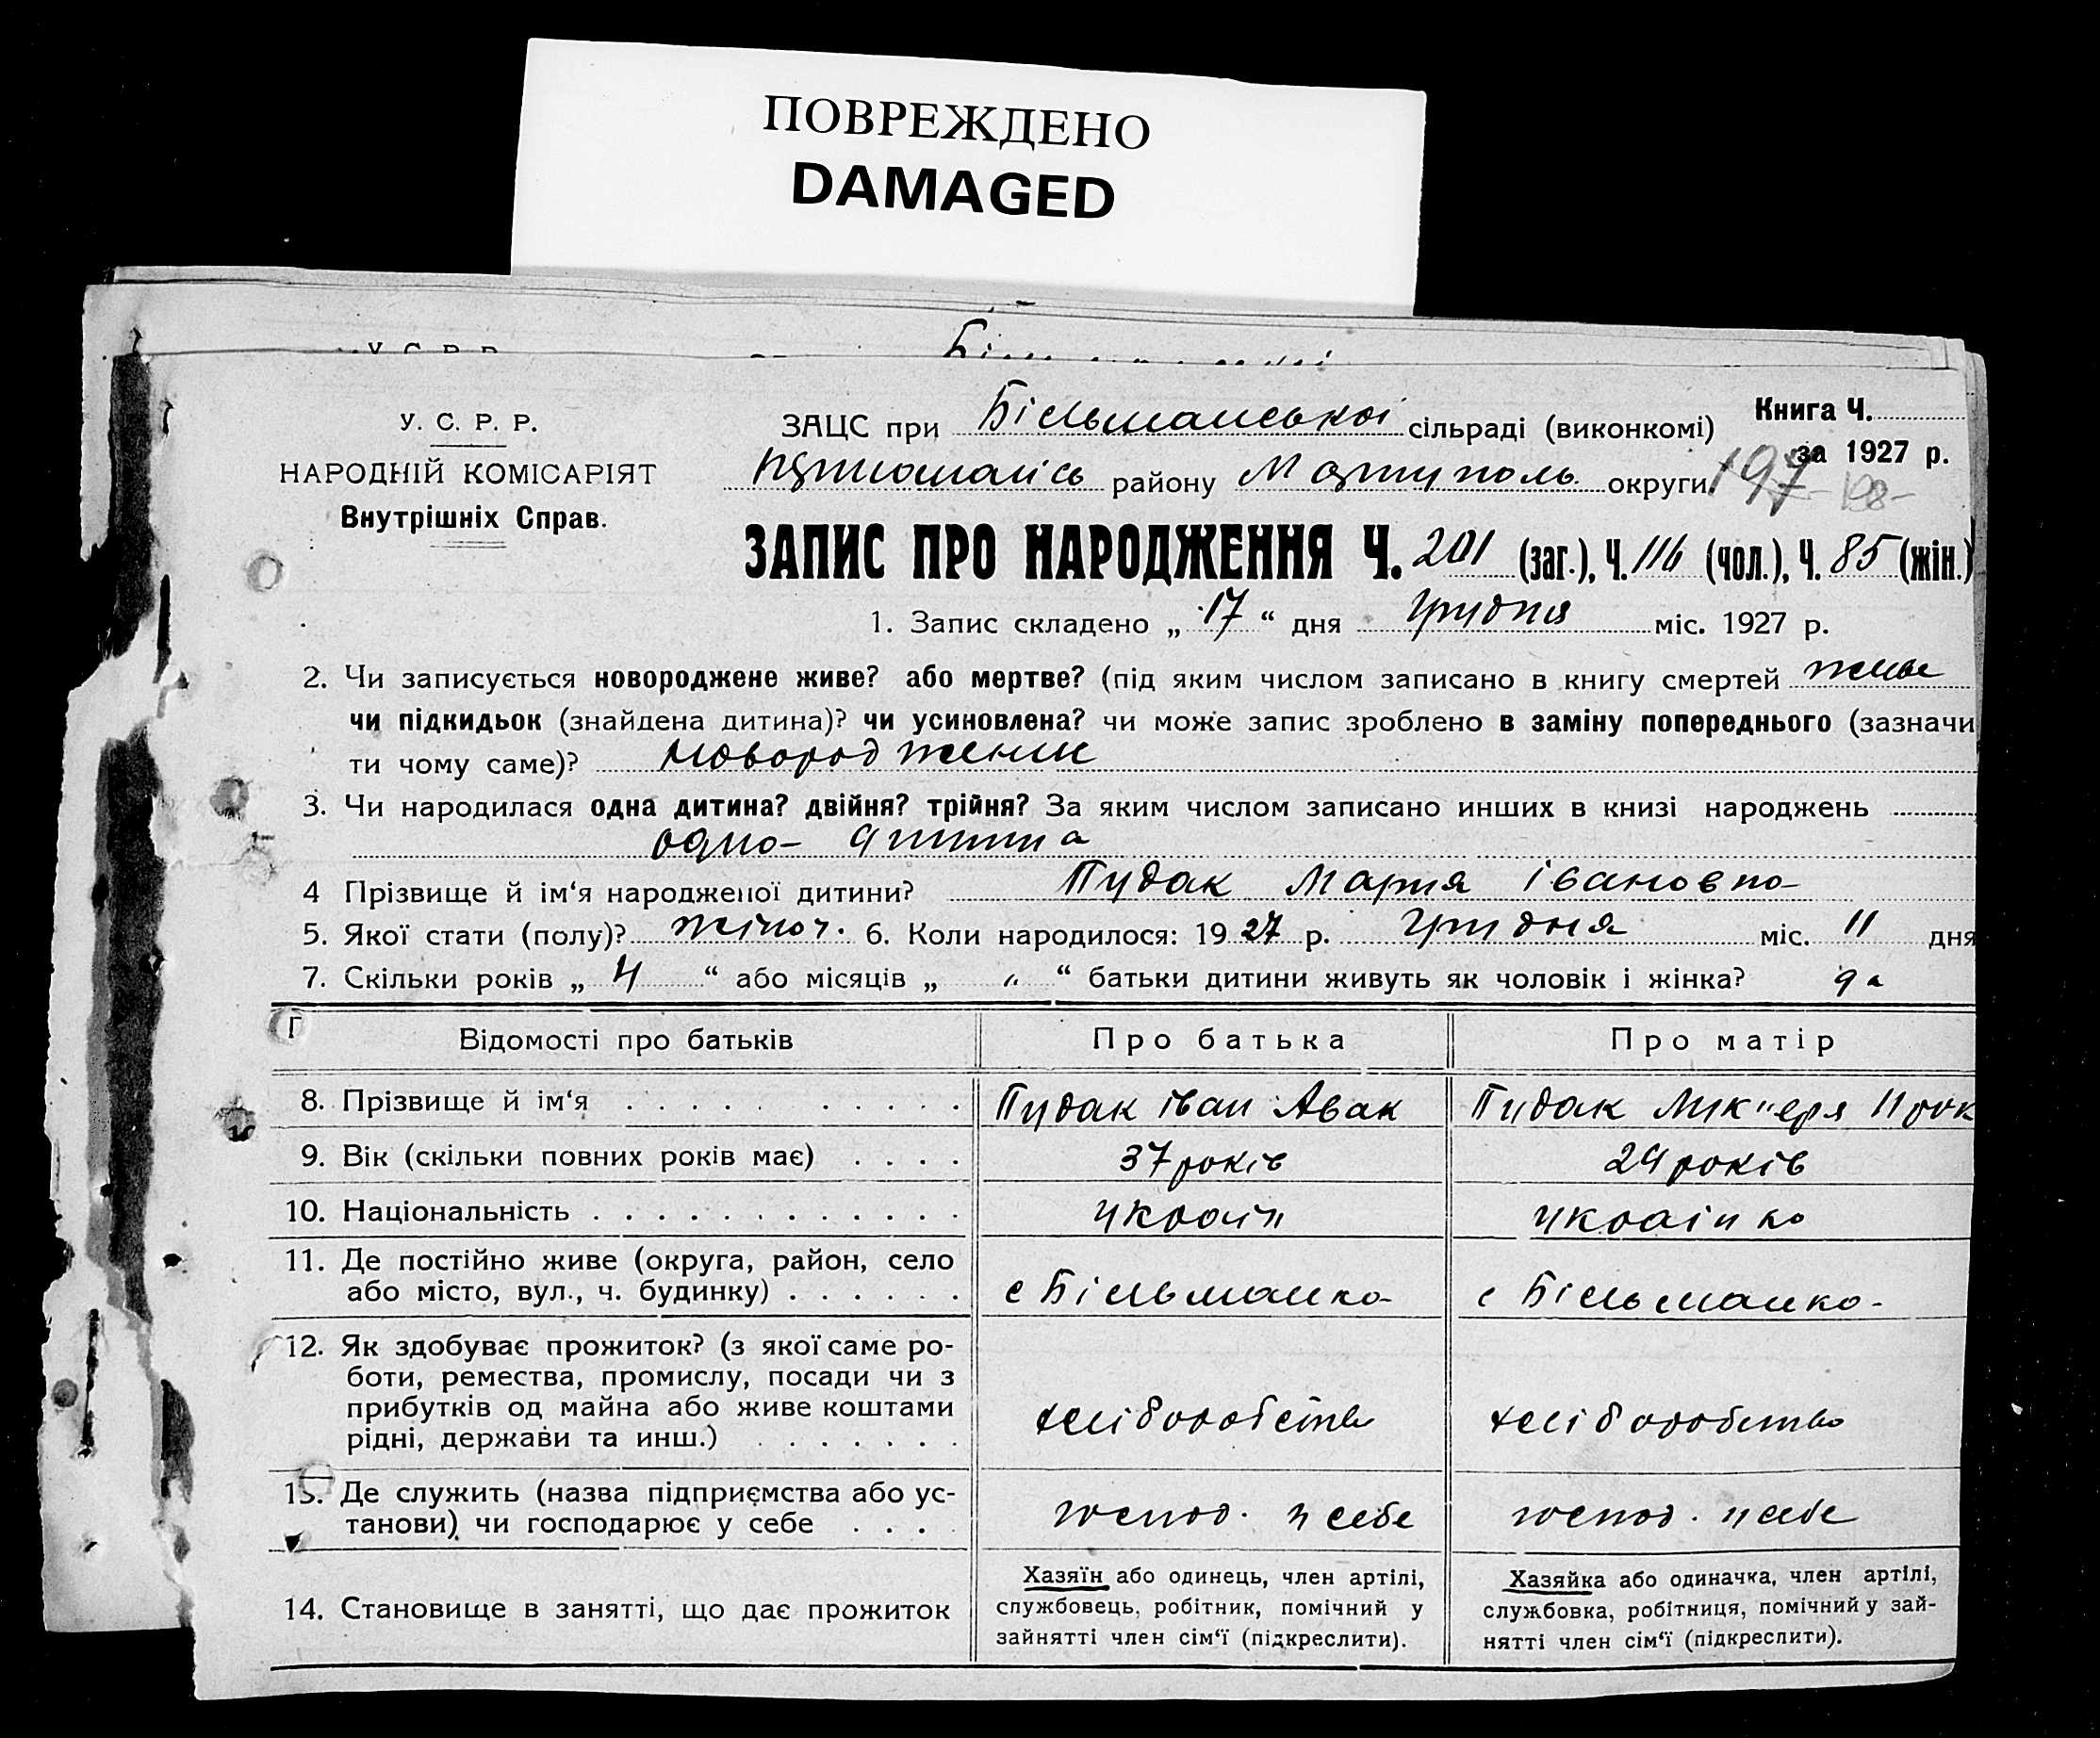 ПОВРЕЖДЕНО
DAMAGED
У. С. Р. Р.
НАРОДНІЙ КОМІСАРІЯТ
Внутрішніх Справ.
ЗАЦС при Більманської сільраді (виконкомі)
Книга Ч.
за 1927 р.
району Маріуполь округи 197
ЗАПИС ПРО НАРОДЖЕННЯ Ч. 201 (заг.), Ч. 116 (чол.), Ч. 85 (жін.)
1. Запис складено „ 17 “ дня грудня міс. 1927 р.
2. Чи записується новороджене живе? або мертве? (під яким числом записано в книгу смертей живе
чи підкидьок (знайдена дитина)? чи усиновлена? чи може запис зроблено в заміну попереднього (зазначи
ти чому саме)? новороджене
3. Чи народилася одна дитина? двійня? трійня? За яким числом записано инших в книзі народжень
одна дитина
4 Прізвище й ім‘я народженої дитини? Пудак Мария Івановна
5. Якої стати (полу)? жіноч. 6. Коли народилося: 1927 р. грудня міс. 11 дня
7. Скільки років „ 4 “ або місяців „ „ “ батьки дитини живуть як чоловік і жінка? да
Відомості про батьків
Про батька
Про матір
8. Прізвище й ім‘я . . . . . . . . . .
Пудак Іван Авак
Пудак
9. Вік (скільки повних років має) . . . .
37 років
29 років
10. Національність . . . . . . . . . . . .
україн
українка
11. Де постійно живе (округа, район, село
або місто, вул., ч. будинку) . . . . . .
с Більманка
с Більманка
12. Як здобуває прожиток? (з якої саме ро-
боти, ремества, промислу, посади чи з
прибутків од майна або живе коштами
рідні, держави та инш.) . . . . . . .
хліборобство
хліборобство
13. Де служить (назва підприємства або ус-
танови) чи господарює у себе . . . .
господ. у себе
господ. у себе
14. Становище в занятті, що дає прожиток
Хазяїн або одинець, член артілі,
службовець, робітник, помічний у
зайнятті член сім‘ї (підкреслити).
Хазяйка або одиначка, член артілі,
службовка, робітниця, помічний у зай-
нятті член сім‘ї (підкреслити).